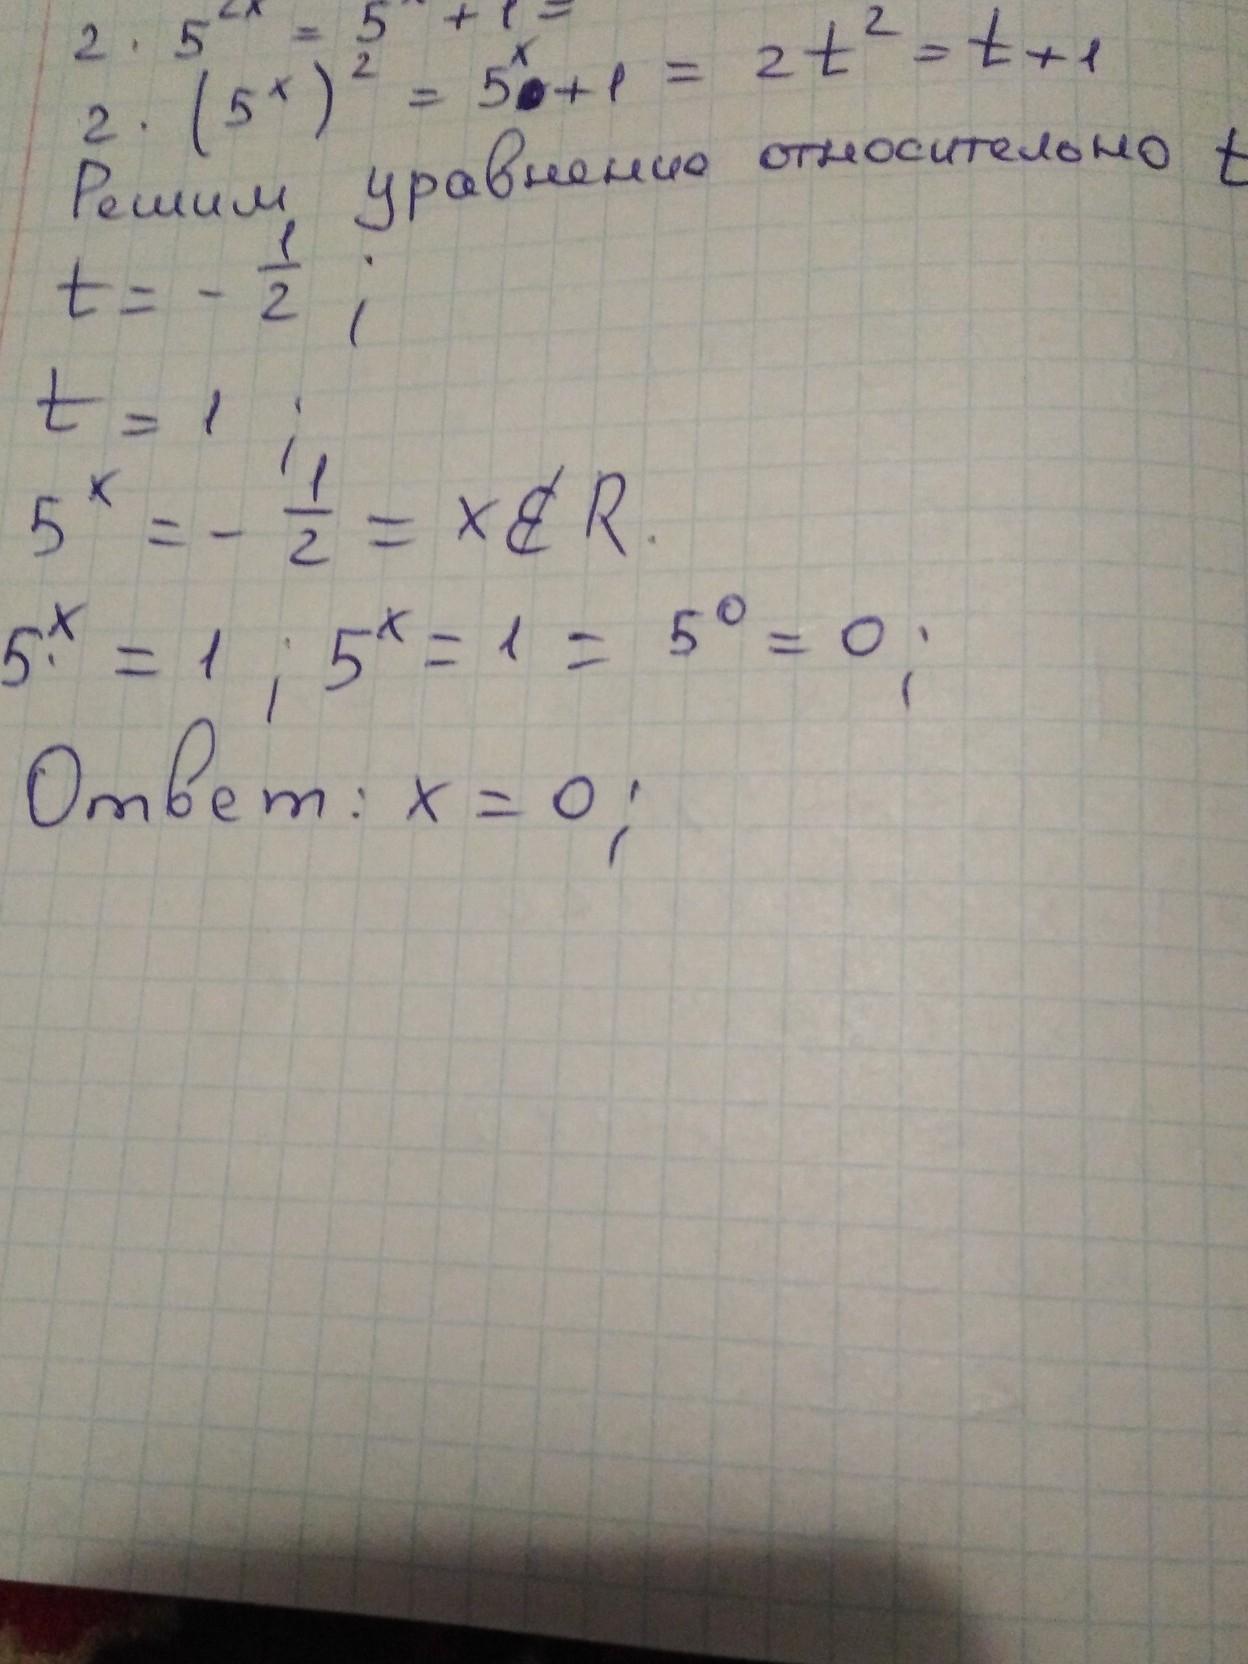 2 · 5^2x = 5^x + 1 =
2 · (5^x)^2 = 5^x + 1 = 2t^2 = t + 1
Решим уравнение относительно t
t = - 1/2 ;
t = 1 ;
5^x = - 1/2 = x ∉ R.
5^x = 1 ; 5^x = 1 = 5^0 = 0 ;
Ответ: x = 0 ;